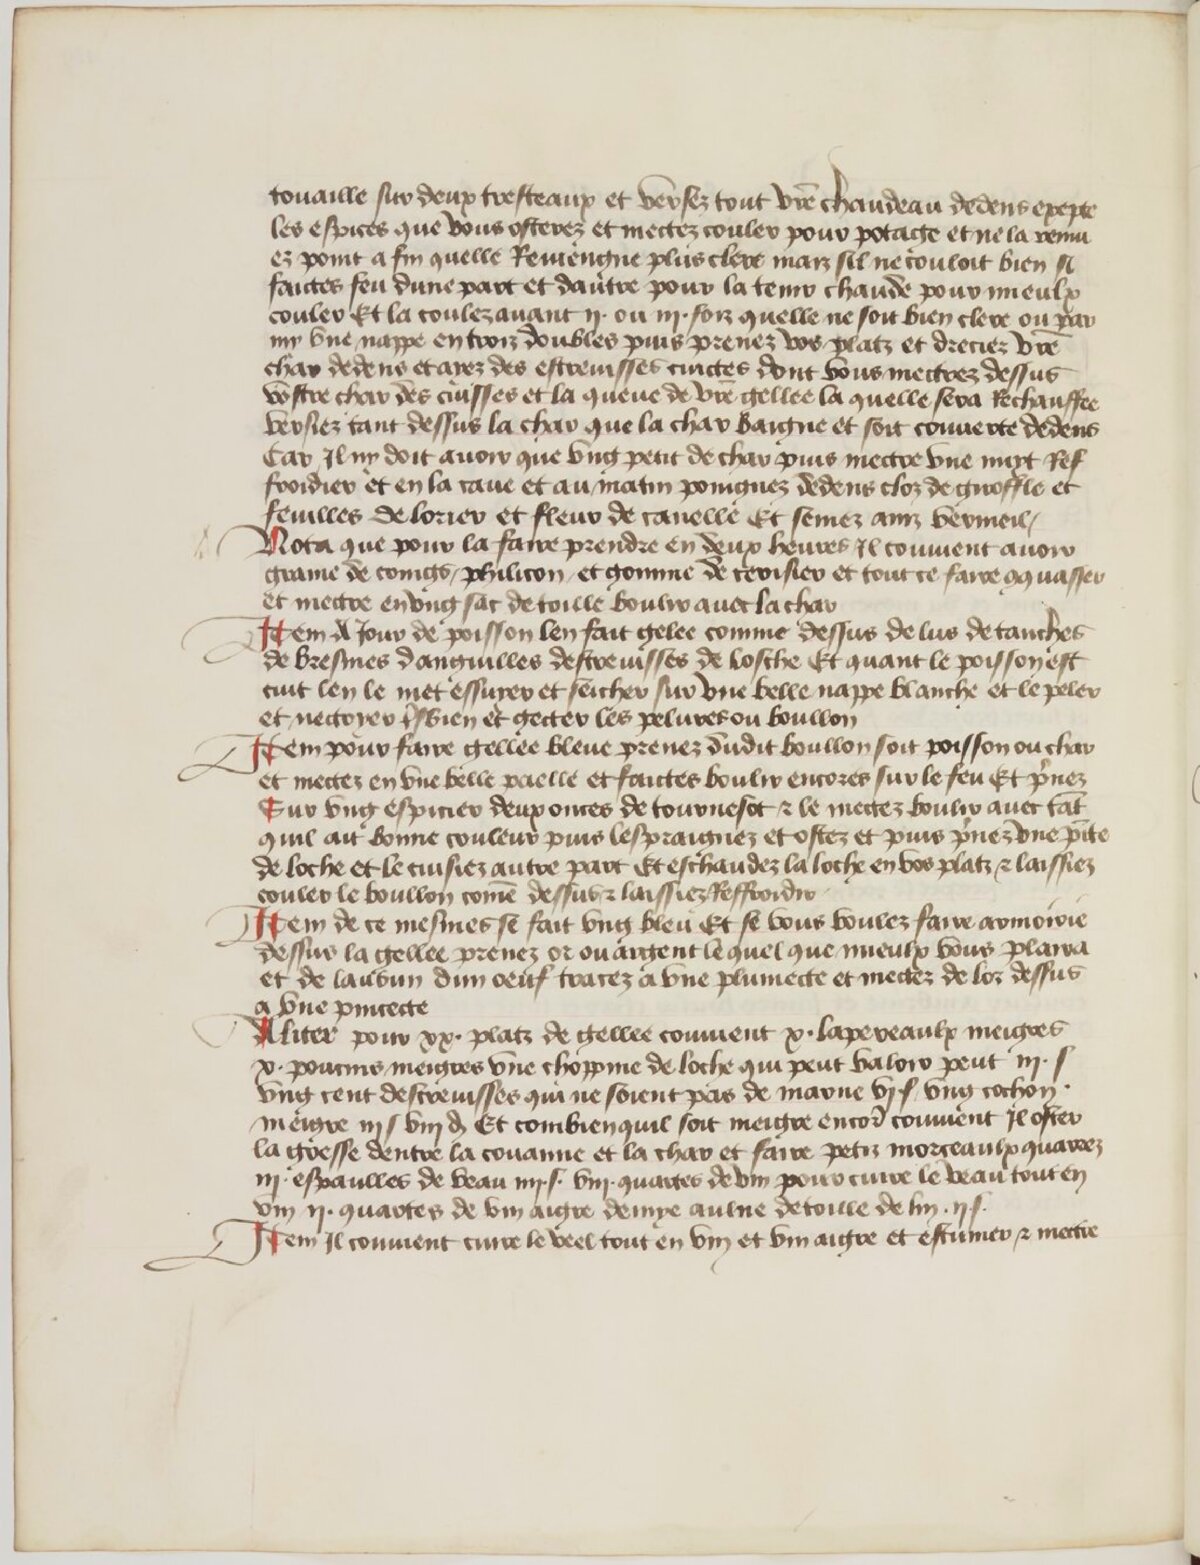 touaille sur deux tresteaux et versez tout vre chaudeau dedens exepte
les espices que vous osterez et mectez couler pour potage et ne la remu
ez point a fin quelle Remengne plus clere mais sil ne couloit bien si
faictes feu dune part et dautre pour la tenir chaude pour mieulx
couler Et la coulez auant ii. ou iii. fois quelle ne soit bien clere ou par
my vne nappe en trois doubles puis prenez vos platz et dreciez vre
char dedens et aiez des escreuisses cuictes dont vous mectrez dessus
vostre char des cuisses et la queue de vre gellee la quelle sera Rechauffee
versiez tant dessus la char que la char baigne et soit couuerte dedens
Car Il ny doit auoir que vng petit de char puis mectre vne nuyt Ref
froidier et en la caue et au matin poingnez dedens cloz de giroffle et
feuilles de lorier et fleur de canelle Et semez aniz vermeil/
Nota que pour la faire prendre en deux heures Il conuient auoir
graine de coings/ philicon/ et gomme de cerisier et tout ce faire 9quasser
et mectre en vng sac de toille boulir auec la char
Item A Jour de poisson len fait gelee comme dessus de lus de tanches
de bresmes danguilles descreuisses de losche Et quant le poisson est
cuit len le met essurer et seicher sur vne belle nappe blanche et le peler
et nectoyer bien et gecter les pelures ou boullon
Item pour faire gellee bleue prenez dudit boullon soit poisson ou char
et mectez en vne belle paelle et faictes boulir encores sur le feu Et pnez
Sur vng espicier deux onces de tournesot & le mectez boulir auec tat
quil ait bonne couleur puis lespraignez et ostez et puis pnez vne pite
de loche et le cuisiez autre part Et eschaudez la loche en vos platz & laissiez
couler le boullon come dessus & laissiez Reffroidir
Item de ce mesmes se fait vng bleu Et se vous voulez faire armoirie
dessus la gellee prenez or ou argent le quel que mieulx vous plaira
et de laubun dun oeuf tracez a vne plumecte et mectez de lor dessus
a vne pincecte
Aliter pour xx. platz de gellee conuient x. lapereaulx meigres
x. poucins meigres vne choppine de loche qui peut valoir peut iii. s
vng cent descreuisses qui ne soient pas de marne vi s/ vng cochon.
meigre iii s viii d Et combien quil soit meigre encor conuient Il oster
la gresse dentre la couanne et la char et faire petiz morceaulx quarrez
iii. espaulles de veau iiii. s. viii. quartes de vin pour cuire le veau tout en
vin ii. quartes de vin aigre demye aulne de toille de lin. ii s.
Item Il conuient cuire le veel tout en vin et vin aigre et escumer & mectre